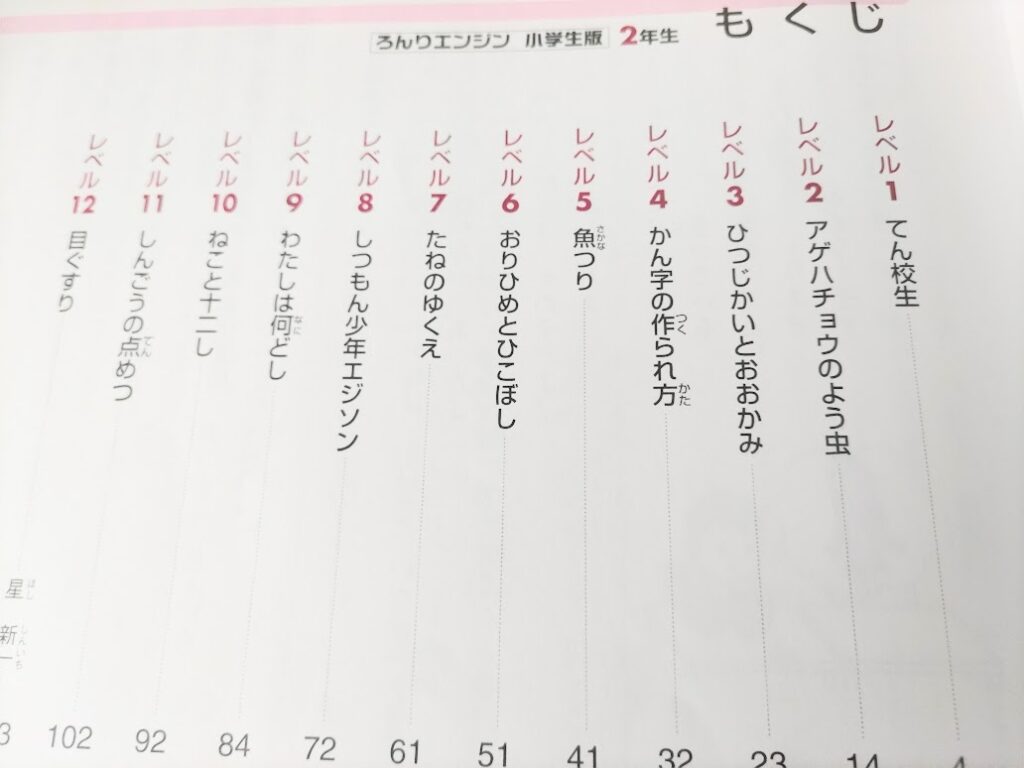 もくじ
ろんりエンジン 小学生版 2年生
レベル1 てん校生 4
レベル2 アゲハチョウのよう虫 14
レベル3 ひつじかいとおおかみ 23
レベル4 かん字の作られ方 32
レベル5 魚つり 41
レベル6 おりひめとひこぼし 51
レベル7 たねのゆくえ 61
レベル8 しつもん少年エジソン 72
レベル9 わたしは何どし 84
レベル10 ねこと十二し 92
レベル11 しんごうの点めつ 102
レベル12 目ぐすり
星新一
3